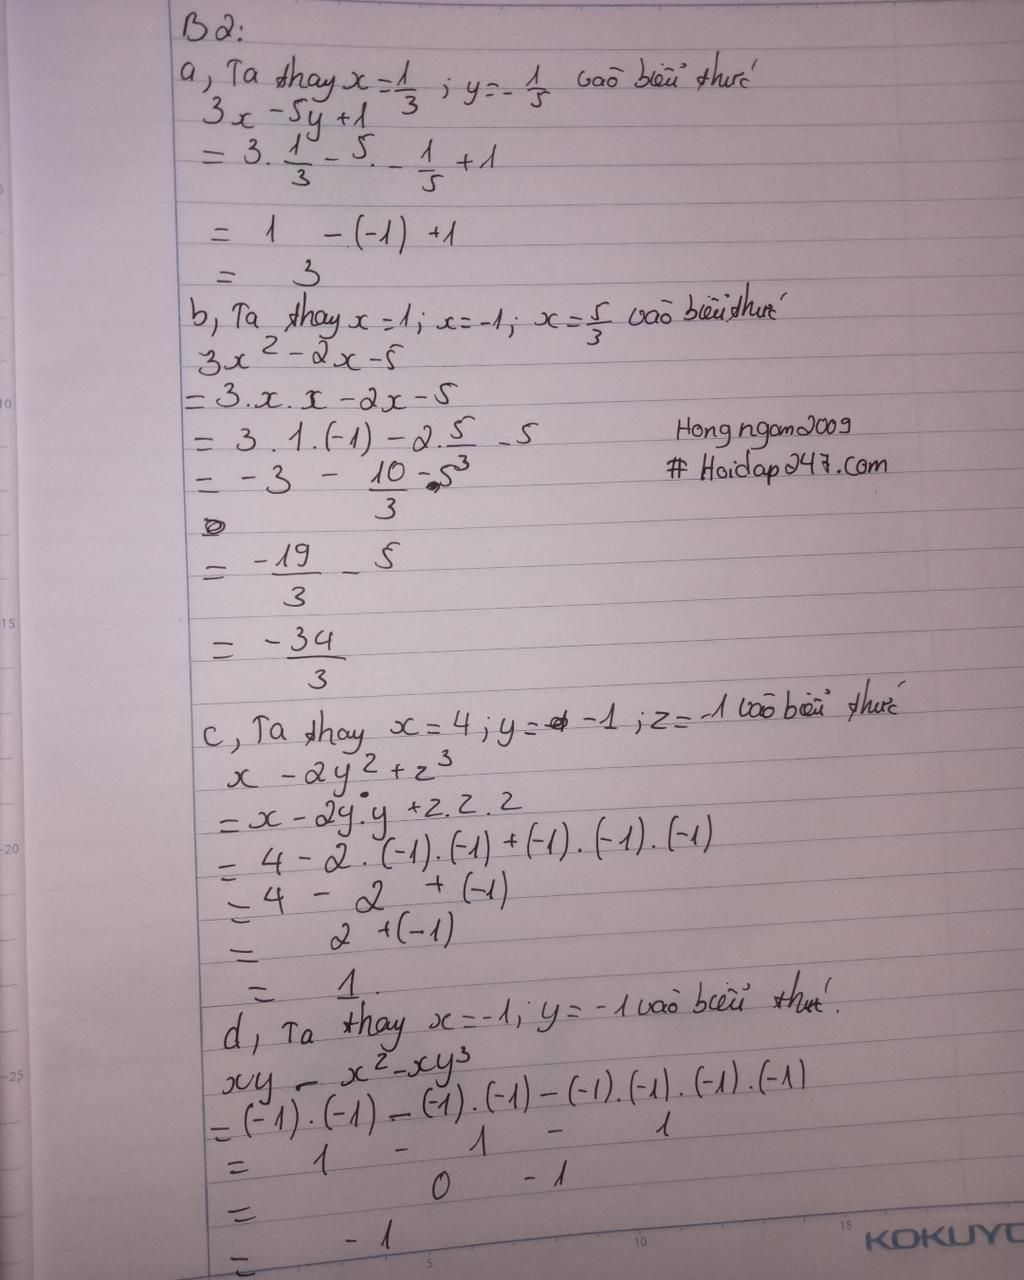 B2:
a, Ta thay x = 1/3 ; y = - 1/5 vào biểu thức
3x - 5y + 1
= 3. 1/3 - 5. - 1/5 + 1
= 1 - (-1) + 1
= 3
b, Ta thay x = 1; x = -1; x = 5/3 vào biểu thức
3x² - 2x - 5
= 3.x.x - 2x - 5
= 3.1.(-1) - 2. 5/3 - 5
Hongngam2009
= -3 - 10/3 - 5
# Hoidap247.com
= -19/3 - 5
= -34/3
c, Ta thay x = 4; y = -1; z = -1 vào biểu thức
x - 2y² + z³
= x - 2y.y + z.z.z
= 4 - 2.(-1).(-1) + (-1).(-1).(-1)
= 4 - 2 + (-1)
= 2 + (-1)
= 1.
d, Ta thay x = -1; y = -1 vào biểu thức.
xy - x² - xy³
= (-1).(-1) - (-1).(-1) - (-1).(-1).(-1).(-1)
= 1 - 1 - 1
= 0 - 1
= - 1
10
15
20
25
5
10
15
KOKUYO